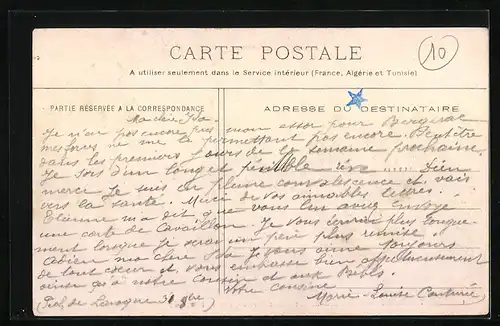 CARTE POSTALE
10
A utiliser seulement dans le Service intérieur (France, Algérie et Tunisie)
PARTIE RÉSERVÉE A LA CORRESPONDANCE
ADRESSE DU DESTINATAIRE
Ma chère Ida
Je n'ai pas encore pris mon essor pour Bergerac
mes forces ne me le permettant pas encore. Peut être
dans les premiers jours de la semaine prochaine.
Je sors d'un long et pénible Dieu
merci Je suis en pleine convalescence et vais
vers la santé. Merci de vos aimables lettres.
Etienne m'a dit que vous lui aviez envoyé
une carte de Cavaillon. Je vous écrirai plus longue
ment lorsque je serai un peu plus remise.
Adieu ma chère Ida Je vous aime toujours
de tout coeur et vous embrasse bien affectueusement
ainsi qu'à notre cousin et aux Bébés.
Votre cousine
Marie-Louise
31 8bre